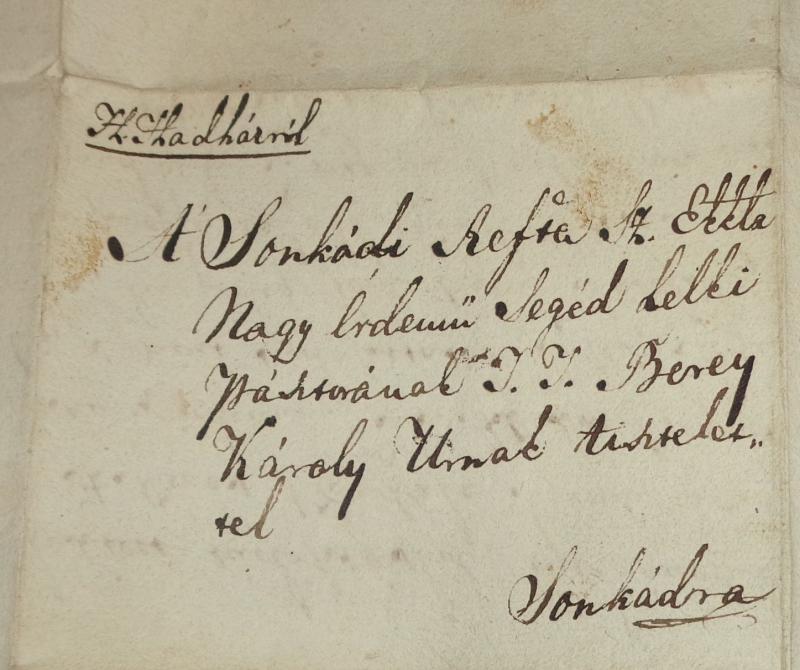 H. Hadházról
A' Sonkádi Refta Sz. Ekkla
Nagy érdemű Segéd Lelki
Pásztorának T. T. Berey
Károly Urnak tisztelet„
tel
Sonkádra